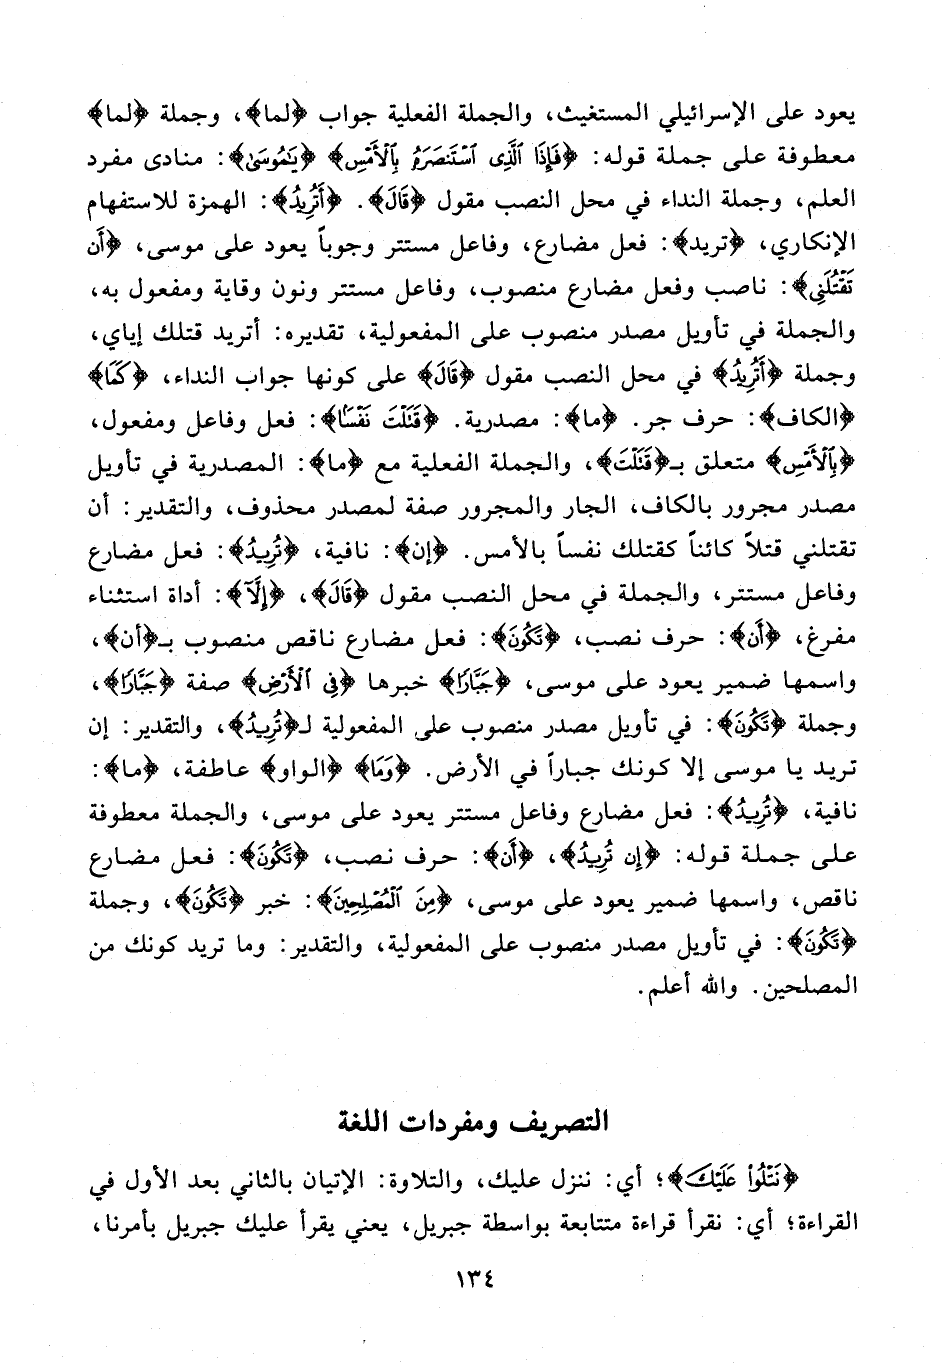 يعود على الإسرائيلي المستغيث، والجملة الفعلية جواب ﴿لما﴾، وجملة ﴿لما﴾
معطوفة على جملة قوله: ﴿فَإِذَا ٱلَّذِى ٱسْتَنصَرَهُۥ بِٱلْأَمْسِ﴾ ﴿يَٰمُوسَىٰ﴾: منادى مفرد
العلم، وجملة النداء في محل النصب مقول ﴿قَالَ﴾. ﴿أَتُرِيدُ﴾: الهمزة للاستفهام
الإنكاري، ﴿تريد﴾: فعل مضارع، وفاعل مستتر وجوباً يعود على موسى، ﴿أَن
تَقْتُلَنِى﴾: ناصب وفعل مضارع منصوب، وفاعل مستتر ونون وقاية ومفعول به،
والجملة في تأويل مصدر منصوب على المفعولية، تقديره: أتريد قتلك إياي،
وجملة ﴿أَتُرِيدُ﴾ في محل النصب مقول ﴿قَالَ﴾ على كونها جواب النداء، ﴿كَمَا﴾
﴿الكاف﴾: حرف جر. ﴿ما﴾: مصدرية. ﴿قَتَلْتَ نَفْسًۢا﴾: فعل وفاعل ومفعول،
﴿بِٱلْأَمْسِ﴾ متعلق بـ﴿قَتَلْتَ﴾، والجملة الفعلية مع ﴿ما﴾: المصدرية في تأويل
مصدر مجرور بالكاف، الجار والمجرور صفة لمصدر محذوف، والتقدير: أن
تقتلني قتلاً كائناً كقتلك نفساً بالأمس. ﴿إن﴾: نافية، ﴿تُرِيدُ﴾: فعل مضارع
وفاعل مستتر، والجملة في محل النصب مقول ﴿قَالَ﴾، ﴿إِلَّآ﴾: أداة استثناء
مفرغ، ﴿أَن﴾: حرف نصب، ﴿تَكُونَ﴾: فعل مضارع ناقص منصوب بـ﴿أن﴾،
واسمها ضمير يعود على موسى، ﴿جَبَّارًا﴾ خبرها ﴿فِى ٱلْأَرْضِ﴾ صفة ﴿جَبَّارًا﴾،
وجملة ﴿تَكُونَ﴾: في تأويل مصدر منصوب على المفعولية لـ﴿تُرِيدُ﴾، والتقدير: إن
تريد يا موسى إلا كونك جباراً في الأرض. ﴿وَمَا﴾ ﴿الواو﴾ عاطفة، ﴿ما﴾:
نافية، ﴿تُرِيدُ﴾: فعل مضارع وفاعل مستتر يعود على موسى، والجملة معطوفة
على جملة قوله: ﴿إِن تُرِيدُ﴾، ﴿أَن﴾: حرف نصب، ﴿تَكُونَ﴾: فعل مضارع
ناقص، واسمها ضمير يعود على موسى، ﴿مِنَ ٱلْمُصْلِحِينَ﴾: خبر ﴿تَكُونَ﴾، وجملة
﴿تَكُونَ﴾: في تأويل مصدر منصوب على المفعولية، والتقدير: وما تريد كونك من
المصلحين. والله أعلم.
التصريف ومفردات اللغة
﴿نَتْلُوا۟ عَلَيْكَ﴾؛ أي: ننزل عليك، والتلاوة: الإتيان بالثاني بعد الأول في
القراءة؛ أي: نقرأ قراءة متتابعة بواسطة جبريل، يعني يقرأ عليك جبريل بأمرنا،
١٣٤